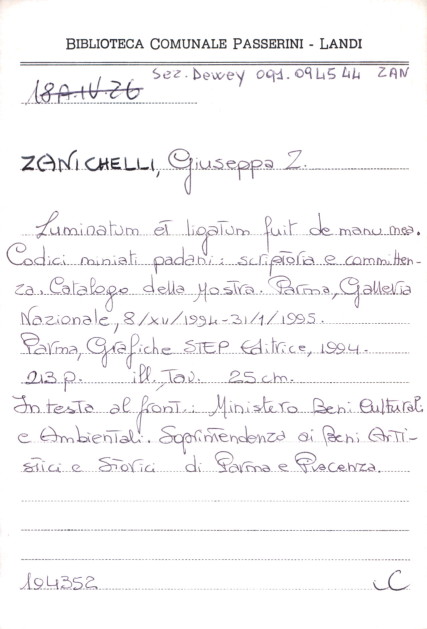 BIBLIOTECA COMUNALE PASSERINI - LANDI
Sez. Dewey 091.094544 ZAN
18A.IV.26
ZANICHELLI, Giuseppa Z.
Luminatum et ligatum fuit de manu mea.
Codici miniati padani: scriptoria e committen-
za. Catalogo della Mostra. Parma, Galleria
Nazionale, 8/XII/1994-31/1/1995.
Parma, Grafiche STEP Editrice, 1994.
213 p. ill., Tav. 25 cm.
In testa al front.: Ministero Beni Culturali
e Ambientali. Soprintendenza ai Beni Arti-
stici e Storici di Parma e Piacenza.
104352 C